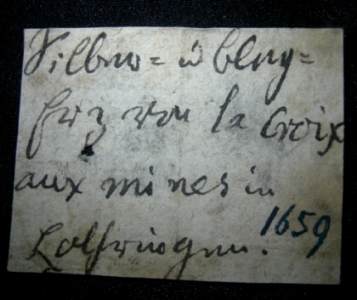 Silber= ü bley=
Erz von la Croix
aux mines in
1659
Lothringen.